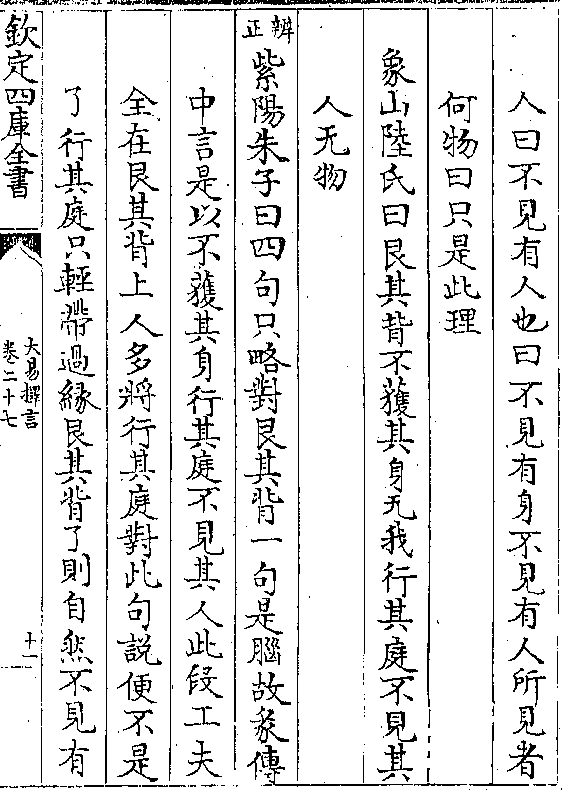 人曰不見有人也曰不見有身不見有人所見者
何物曰只是此理
象山陸氏曰艮其背不獲其身无我行其庭不見其
人无物
辨正
紫陽朱子曰四句只略對艮其背一句是腦故彖傳
中言是以不獲其身行其庭不見其人此段工夫
全在艮其背上人多將行其庭對此句說便不是
了行其庭只輕帶過緣艮其背了則自然不見有
欽定四庫全書
大易擇言
卷二十七
十一